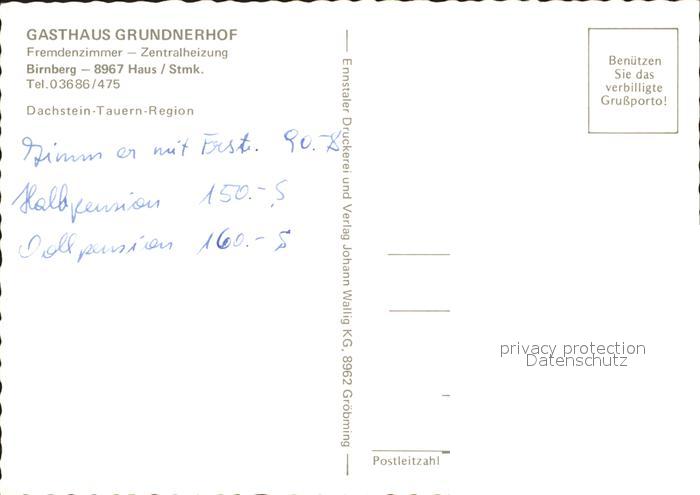 GASTHAUS GRUNDNERHOF
Fremdenzimmer — Zentralheizung
Birnberg — 8967 Haus / Stmk.
Tel. 03686/475
Dachstein-Tauern-Region
Zimmer mit Frst. 90.-S
Halbpension 150.- S
Vollpension 160.- S
Ennstaler Druckerei und Verlag Johann Wallig KG, 8962 Gröbming
Benützen
Sie das
verbilligte
Grußporto!
privacy protection
Datenschutz
Postleitzahl